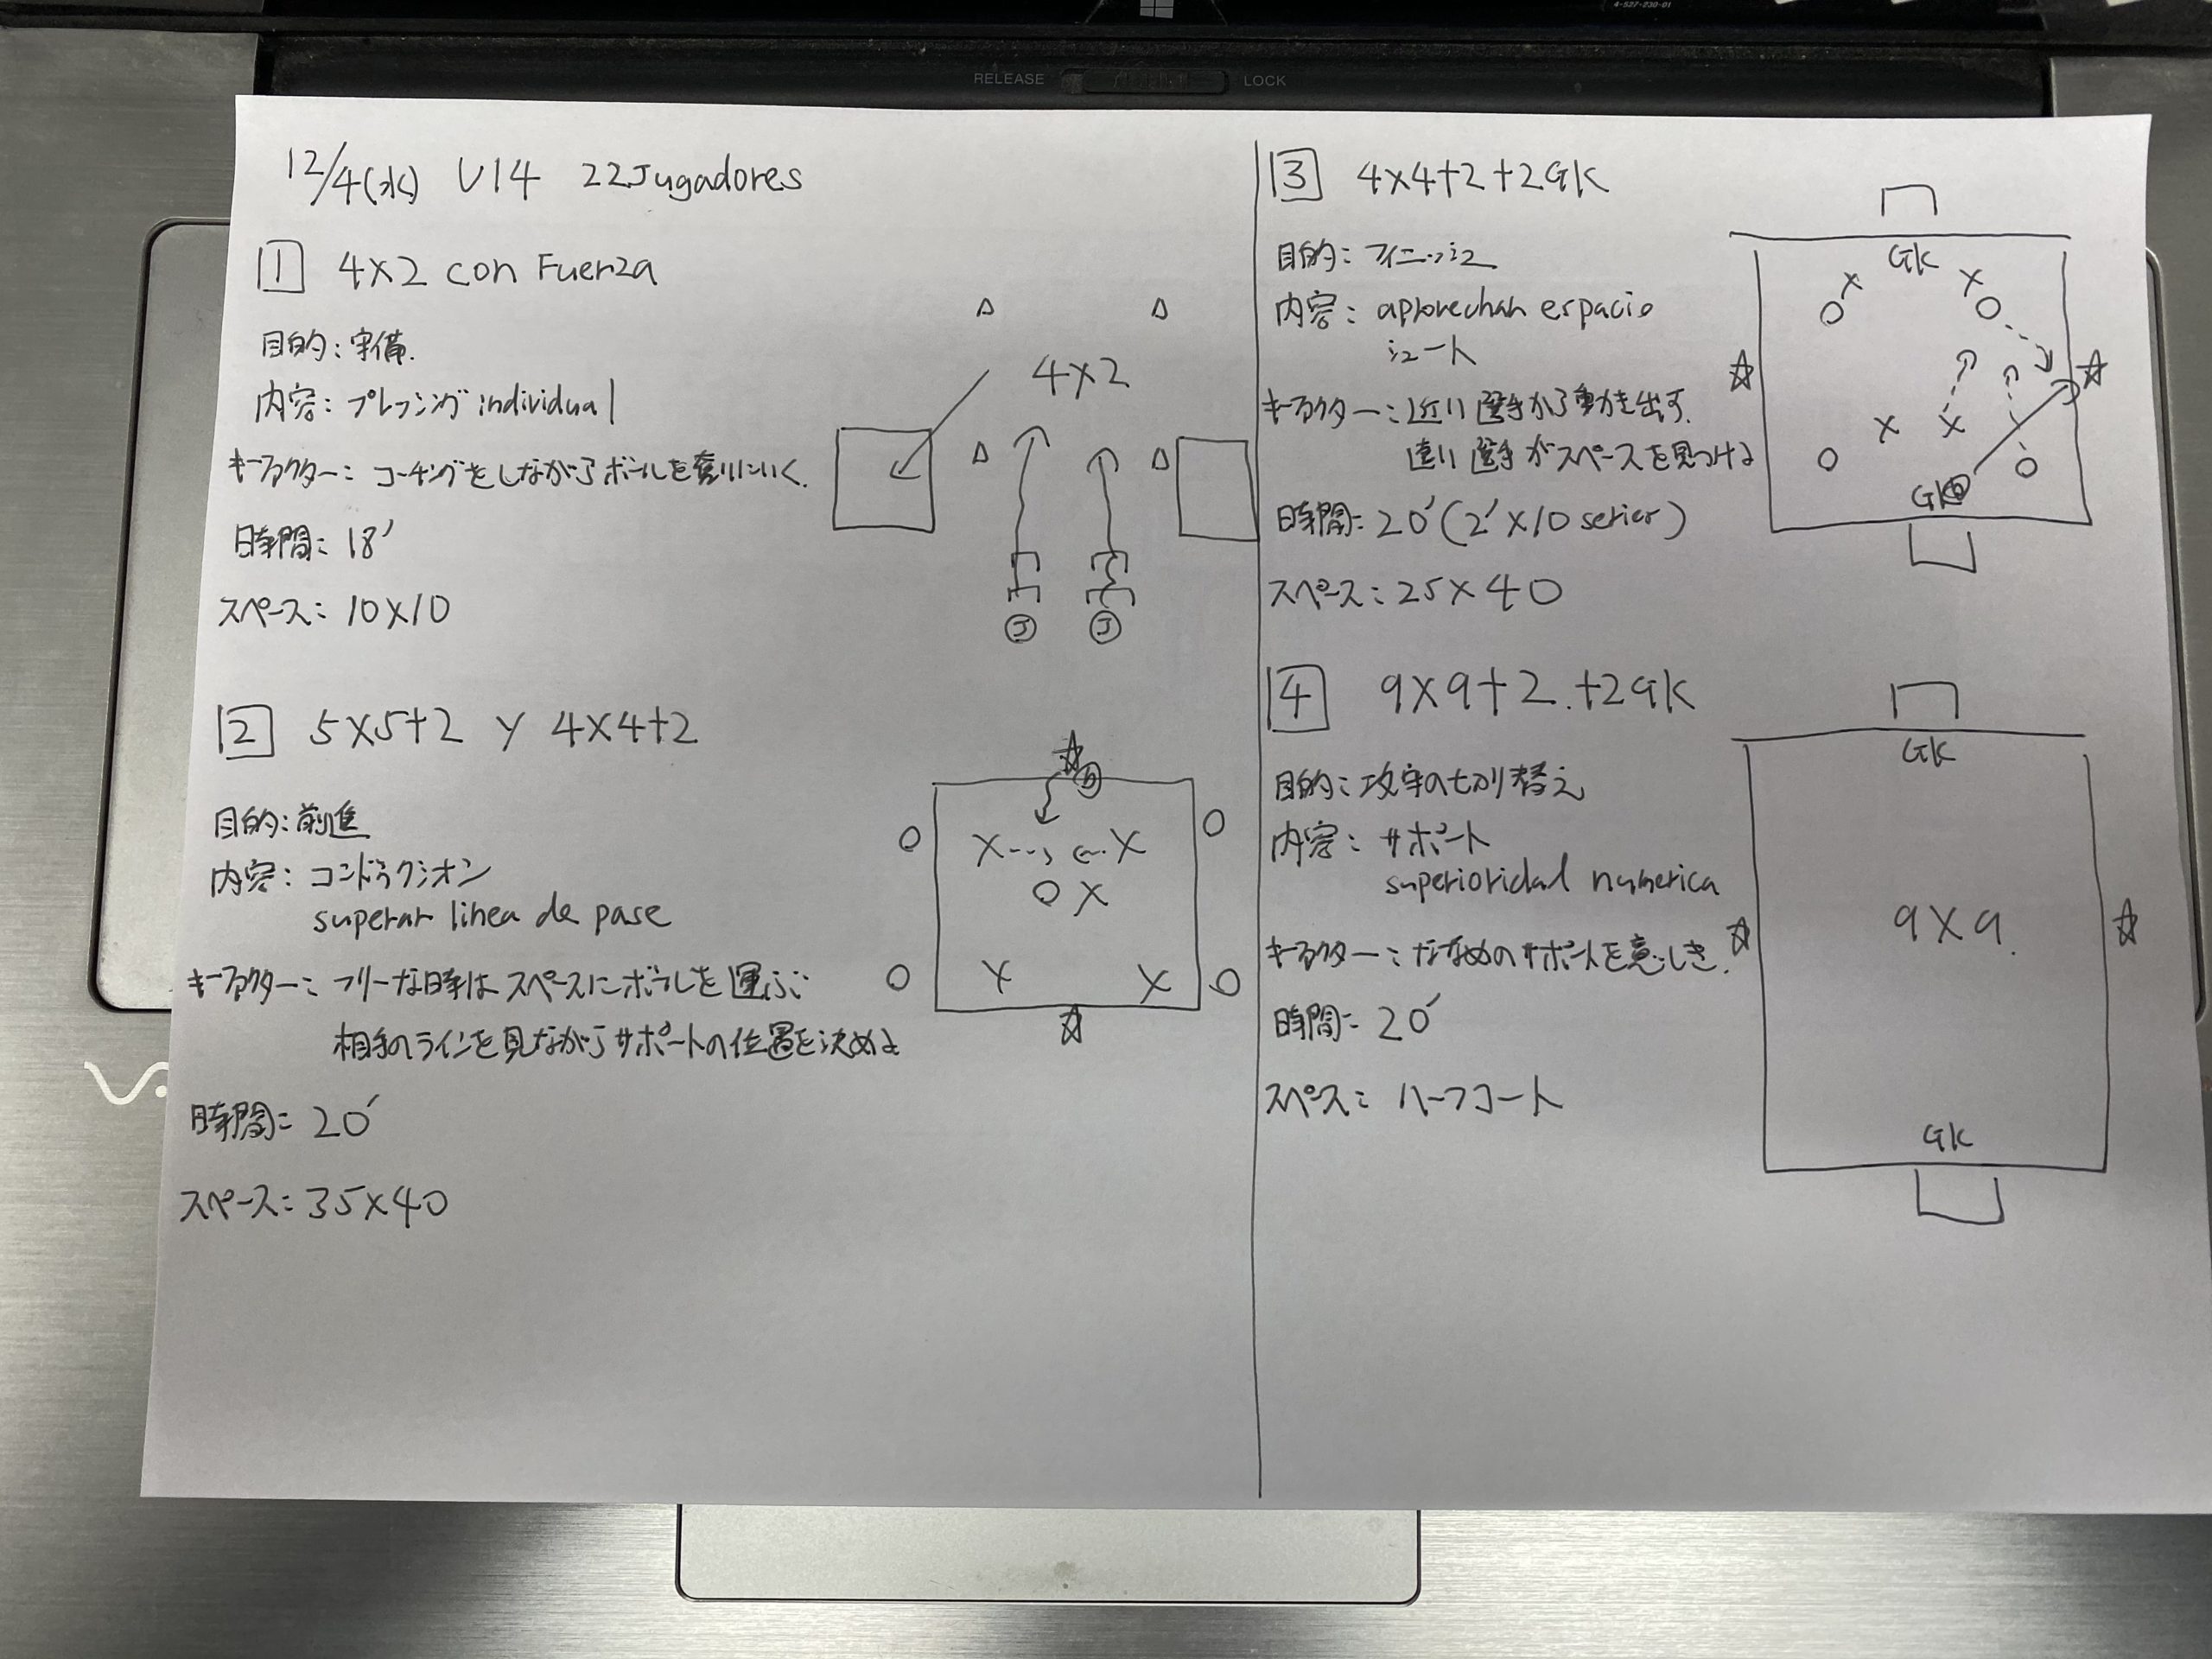 RELEASE LOCK
4-527-230-01
12/4(水) U14 22Jugadores
1 4×2 con Fuerza
目的:守備.
内容:プレッシング individual
キーファクター:コーチングをしながらボールを奪いにいく.
時間:18'
スペース:10×10
4×2
J J
2 5×5+2 y 4×4+2
目的:前進
内容:コンドゥクシオン
superar linea de pase
キーファクター:フリーな時はスペースにボールを運ぶ
相手のラインを見ながらサポートの位置を決める
時間:20'
スペース:35×40
3 4×4+2+2GK
目的:フィニッシュ
内容:aplovechan espacio
シュート
キーファクター:近い選手から動き出す.
遠い選手がスペースを見つける
時間:20'(2'×10 serier)
スペース:25×40
GK
GK
4 9×9+2.+2GK
目的:攻守の切り替え
内容:サポート
superioridad numerica
キーファクター:ななめのサポートを意しき.
時間:20'
スペース:ハーフコート
GK
9×9.
GK